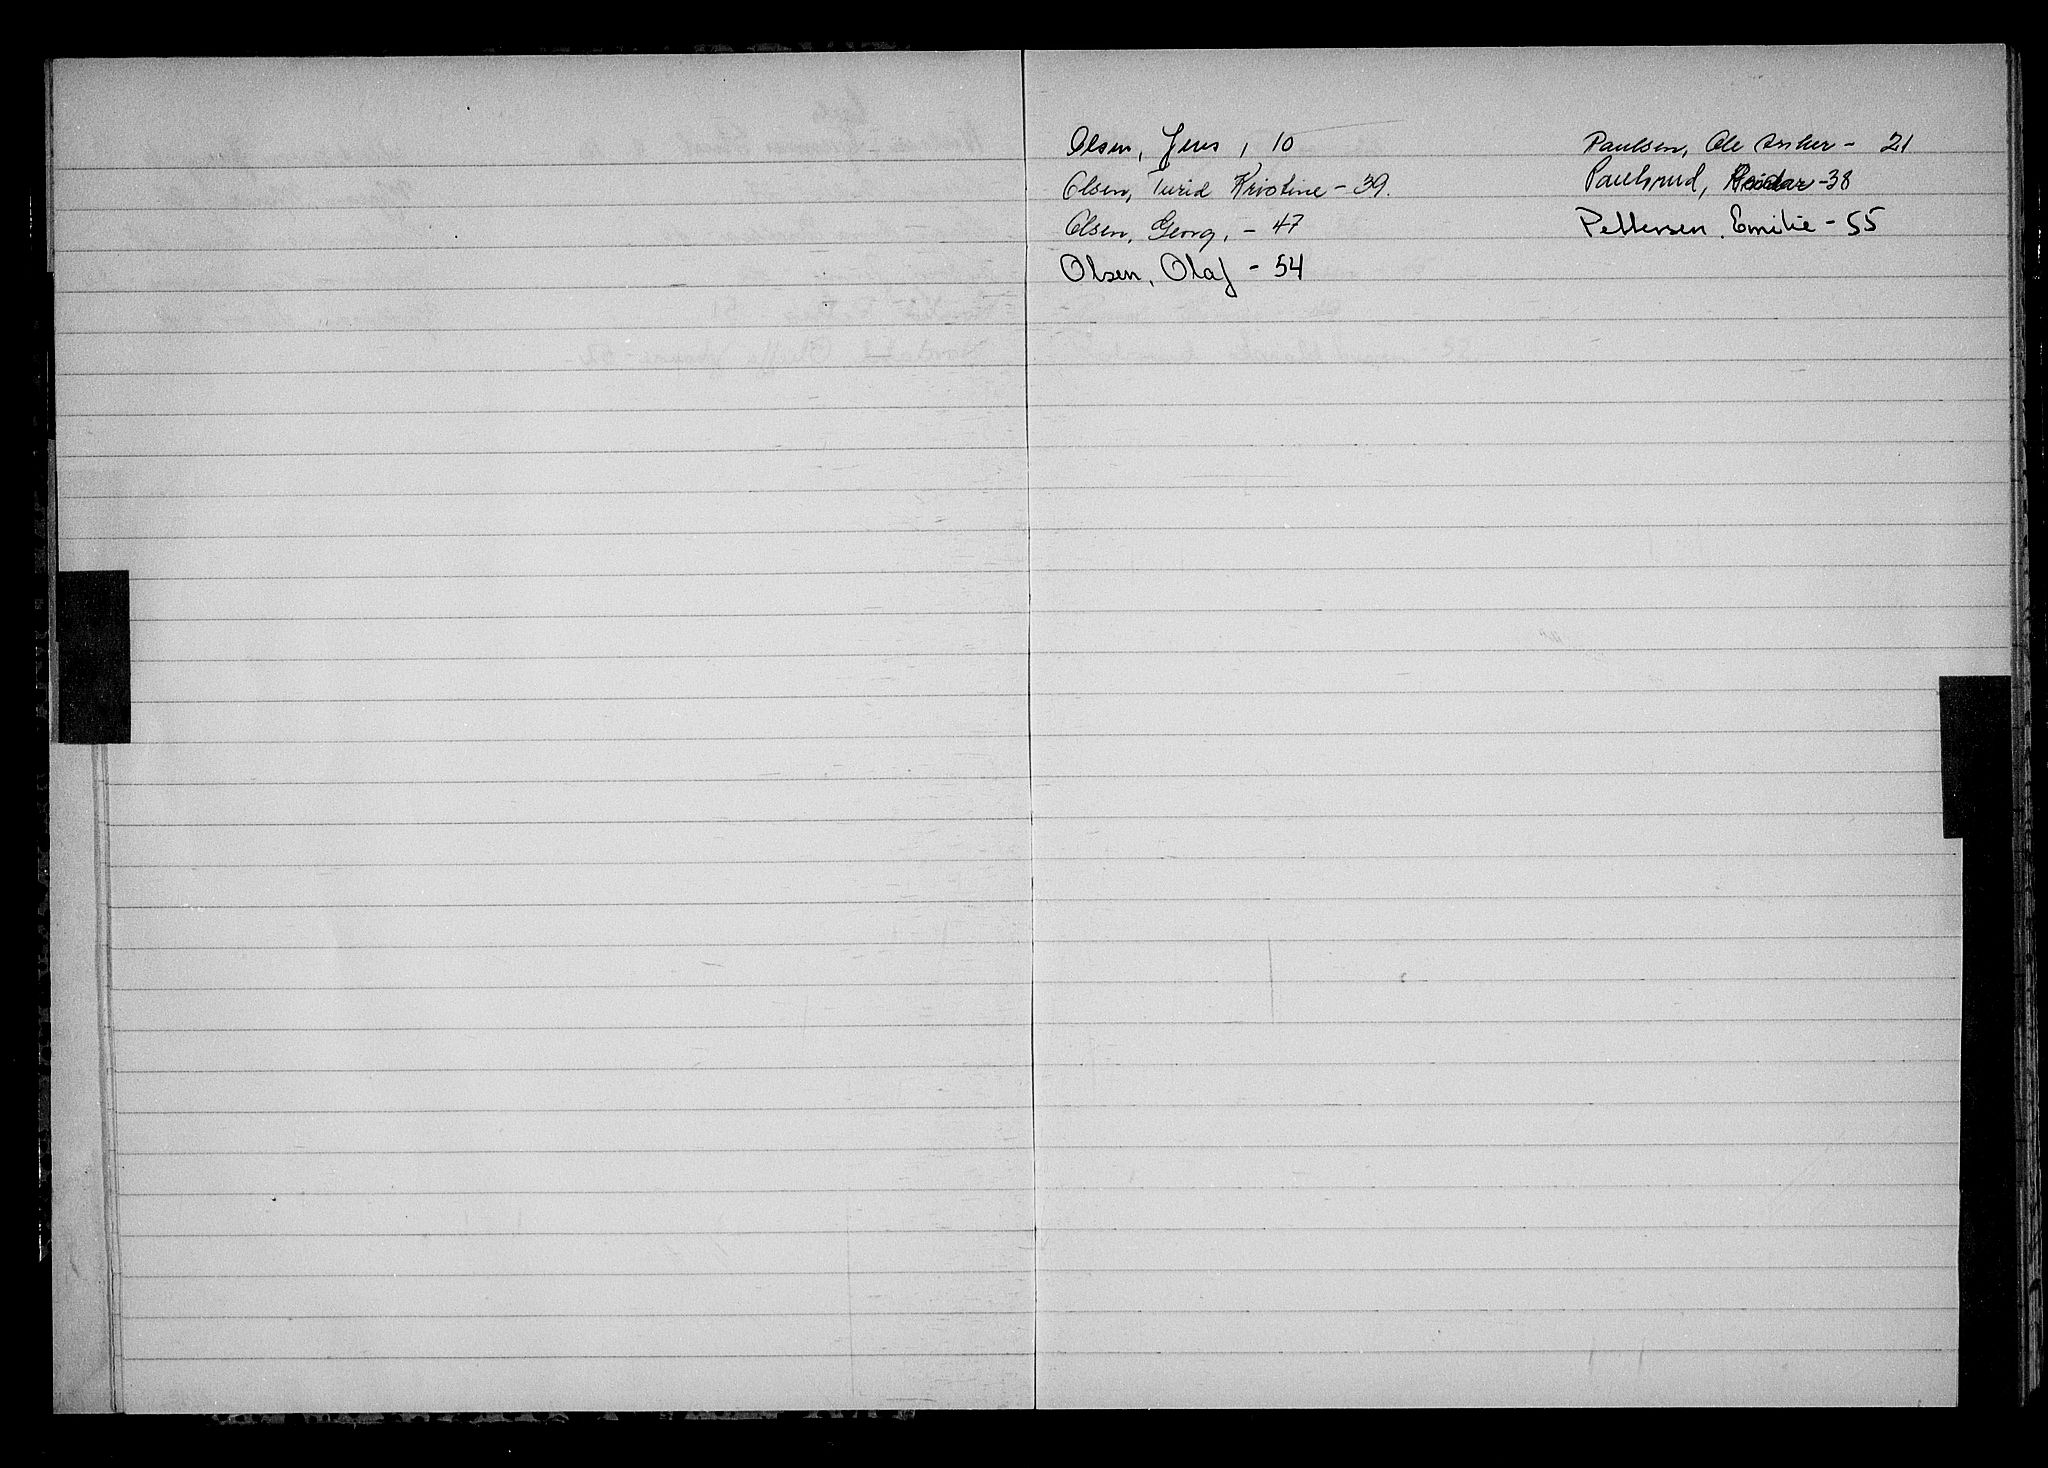 Olsen, Jens, 10
Olsen, Turid Kristine - 39.
Olsen, Georg, - 47
Olsen, Olaf - 54
Paulsen, Ole Anker - 21
Paulsrud, Reidar - 38
Pettersen, Emilie - 55